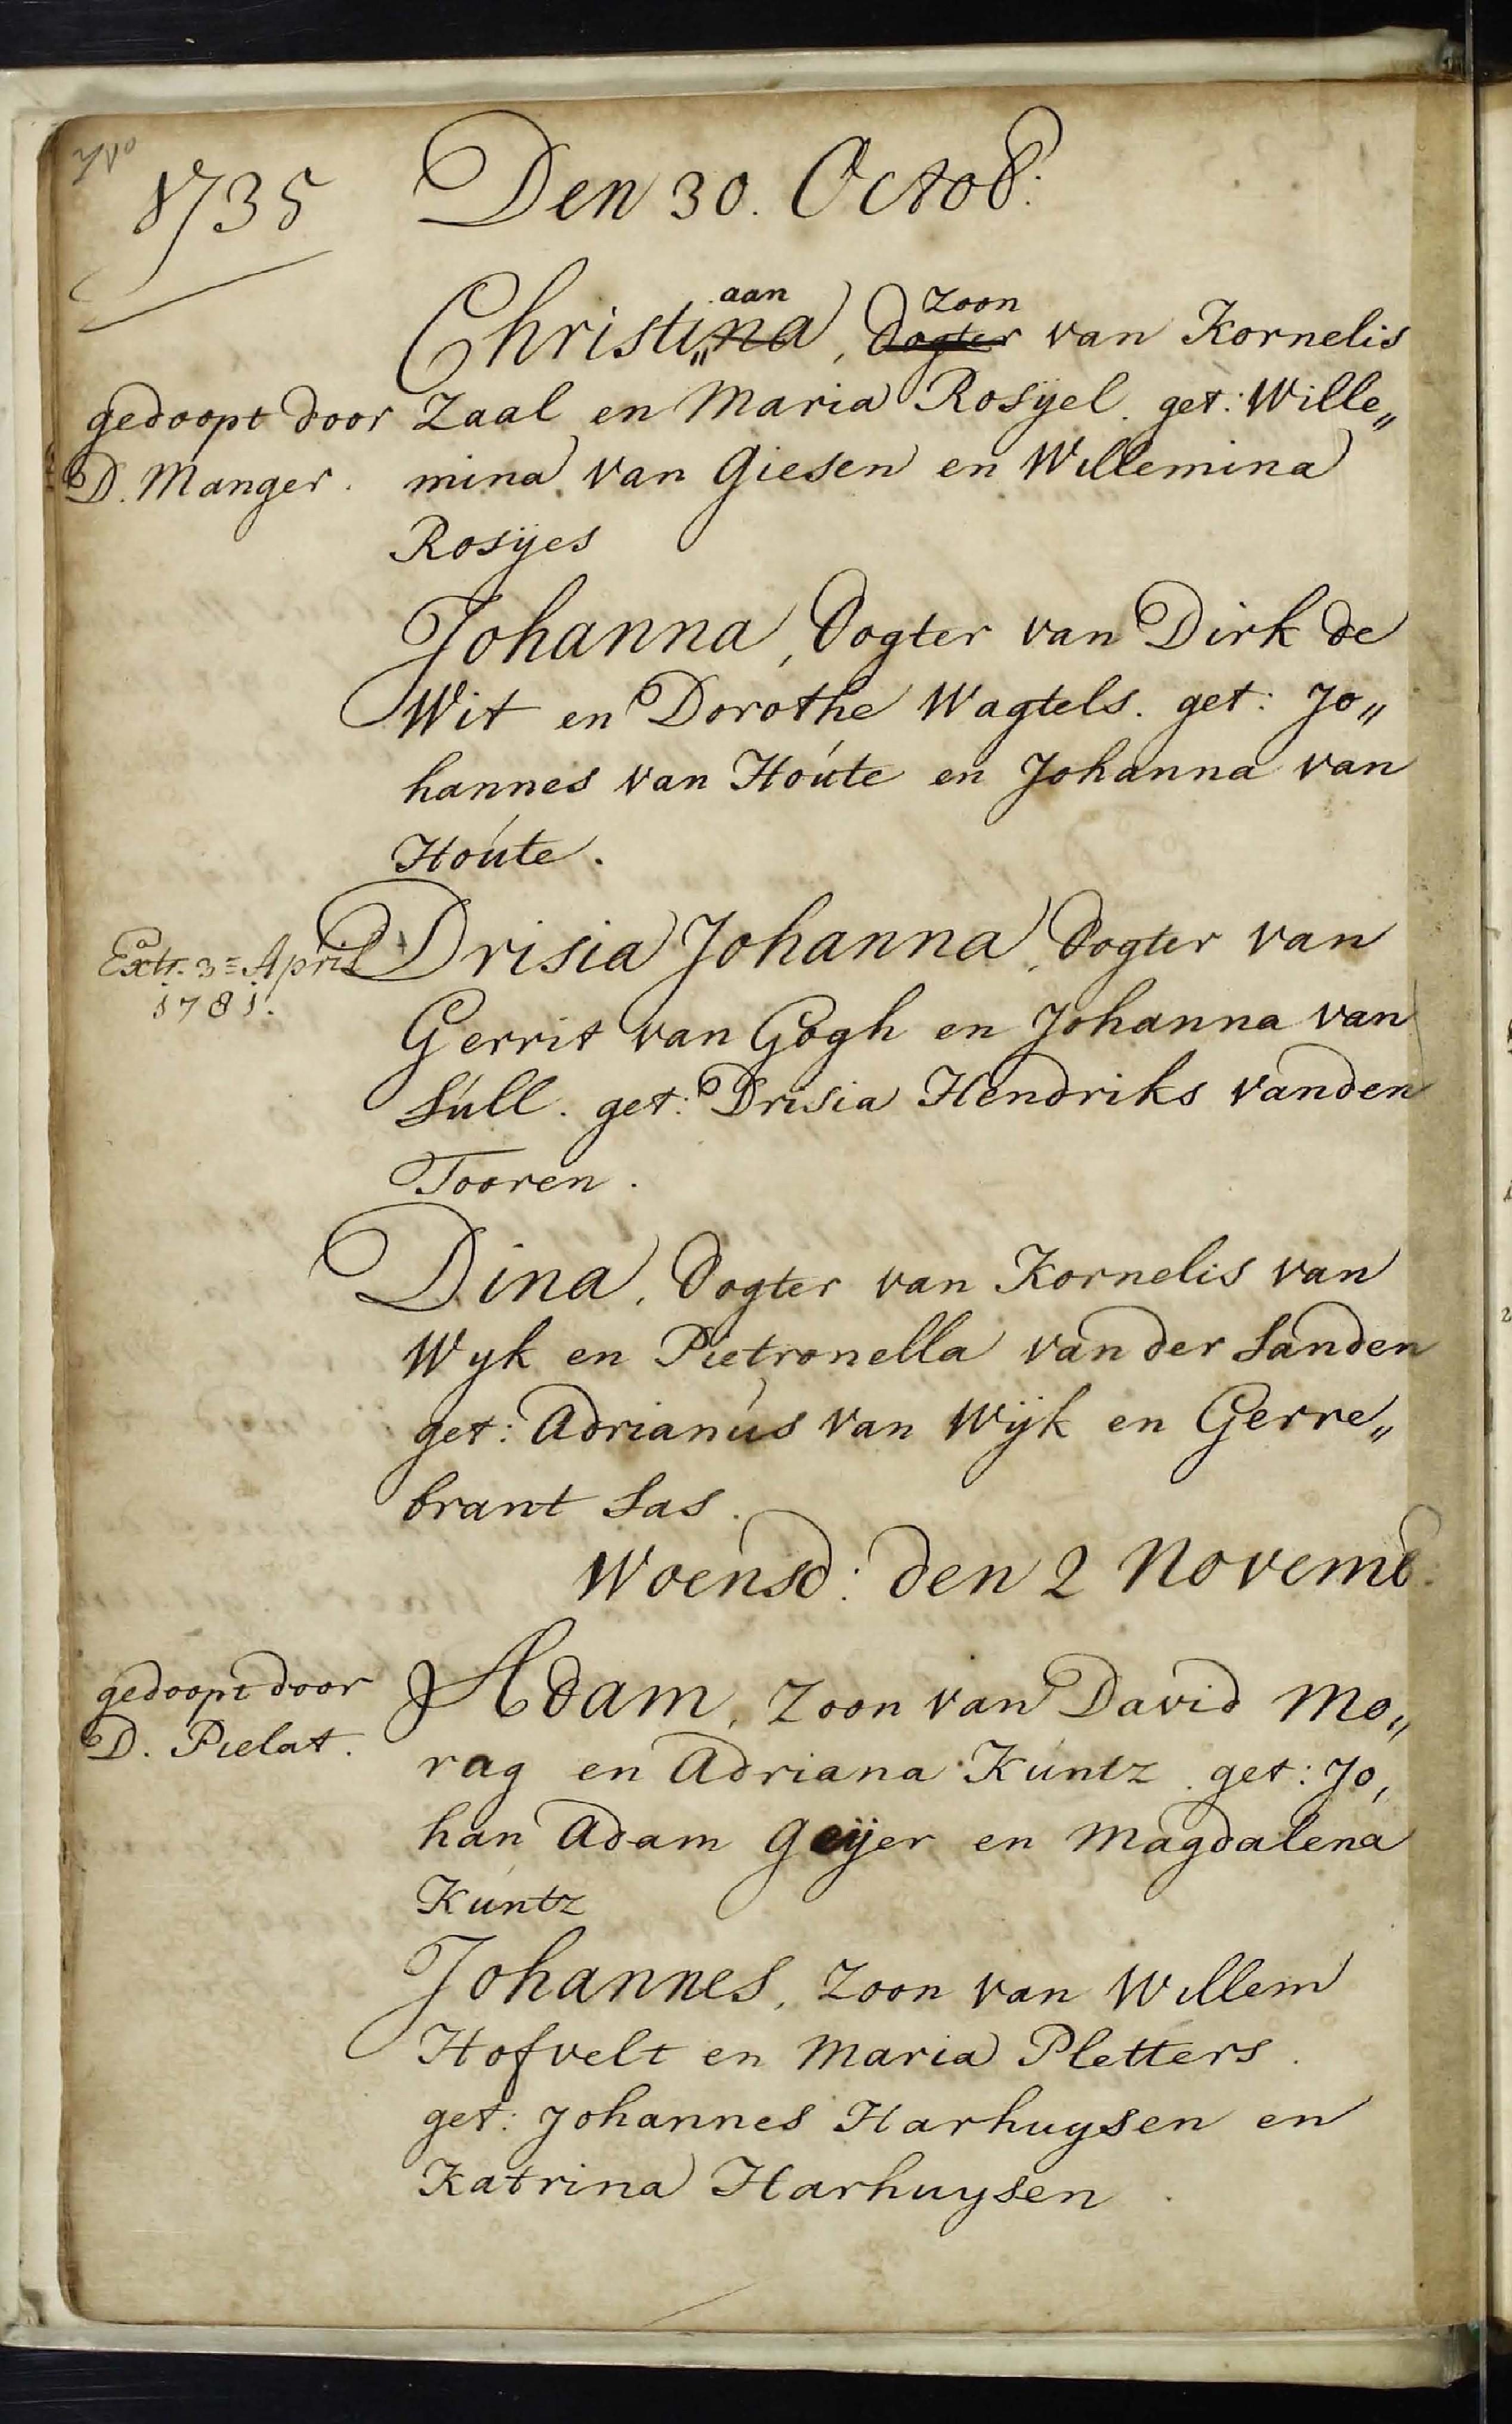 1735
Den 30. Octob:
aan zoon
Christi„na, Dogter van Kornelis
gedoopt door
D. Manger.
Zaal en Maria Rosyel. get: Wille„
mina van Giesen en Willemina
Rosÿes
Johanna, Dogter van Dirk de
Wit en Dorothe Wagtels. get: Jo„
hannes van Hoúte en Johanna van
Hoúte.
Extr. 3= April
1781.
Drisia Johanna, Dogter van
Gerrit van Gogh en Johanna van
Súll. get: Drisia Hendriks vanden
Tooren.
Dina, Dogter van Kornelis van
Wyk en Pietronella van der Sanden
get: Adrianús van Wÿk en Gerre„
brant Sas.
Woensd: den 2 Novemb:
gedoopt door
D. Pielat.
Adam, Zoon van David Mo„
rag en Adriana Kúntz. get: Jo,
han Adam Geÿer en Magdalena
Kúntz
Johannes, Zoon van Willem
Hofvelt en Maria Pletters.
get: Johannes Harhuysen en
Katrina Harhuysen.